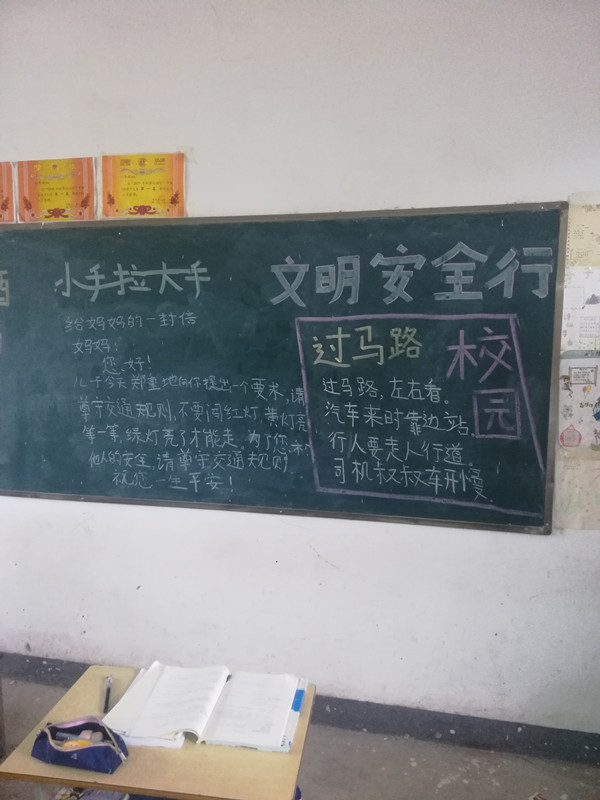 小手拉大手
文明安全行
给妈妈的一封信
妈妈:
您好!
儿子今天郑重地向你提出一个要求,请
尊守交通规则,不要闯红灯,黄灯亮
等一等,绿灯亮了才能走,为了您和
他人的安全,请尊守交通规则
祝您一生平安!
校园
过马路
过马路,左右看。
汽车来时靠边站。
行人要走人行道。
司机叔叔车开慢。